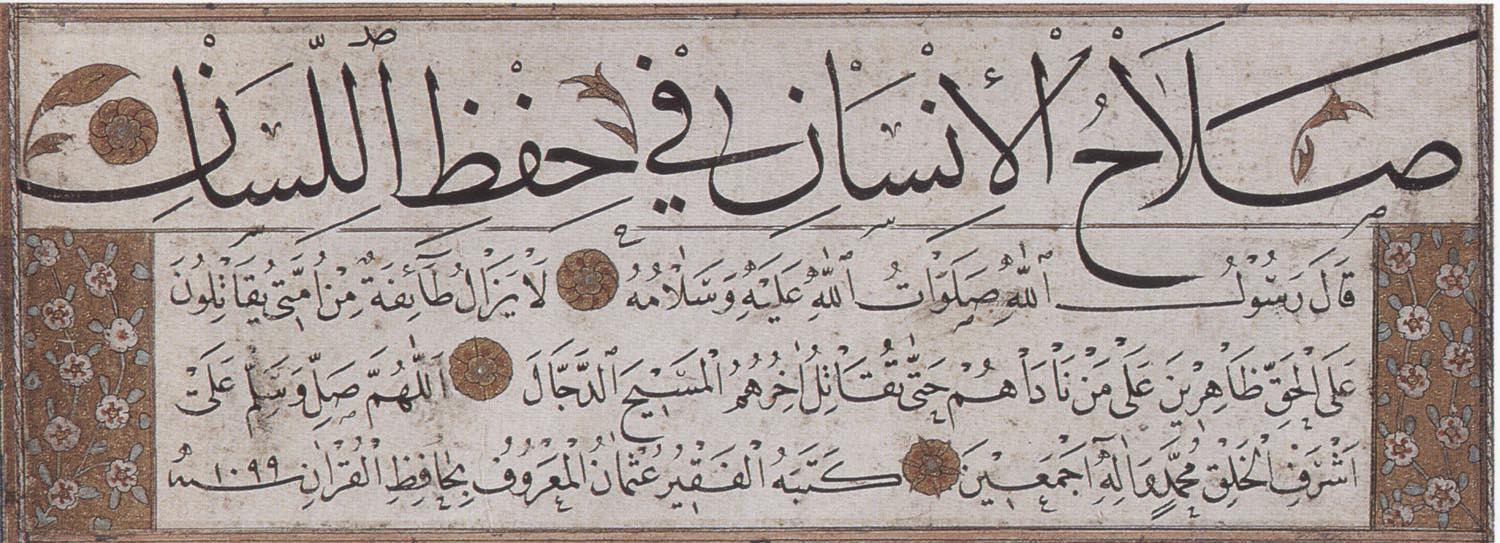 صَلَاحُ الْإِنْسَانِ فِي حِفْظِ اللِّسَانِ
قَالَ رَسُوْلُ اللّٰهِ صَلَوَاتُ اللّٰهِ عَلَيْهِ وَسَلَامُهُ لَا يَزَالُ طَائِفَةٌ مِنْ اُمَّتِى يُقَاتِلُونَ
عَلَى الْحَقِّ ظَاهِرِينَ عَلَى مَنْ نَادَاهُمْ حَتَّى تُقَاتِلَ اٰخِرُهُمُ الْمَسِيحَ الدَّجَّالَ اَللّٰهُمَّ صَلِّ وَسَلِّمْ عَلَى
اَشْرَفِ الْخَلْقِ مُحَمَّدٍ وَاٰلِهِ اَجْمَعِينَ كَتَبَهُ الْفَقِيرُ عُثْمَانُ الْمَعْرُوفُ بِحَافِظِ الْقُرْاٰنِ سنة ١٠٩٩